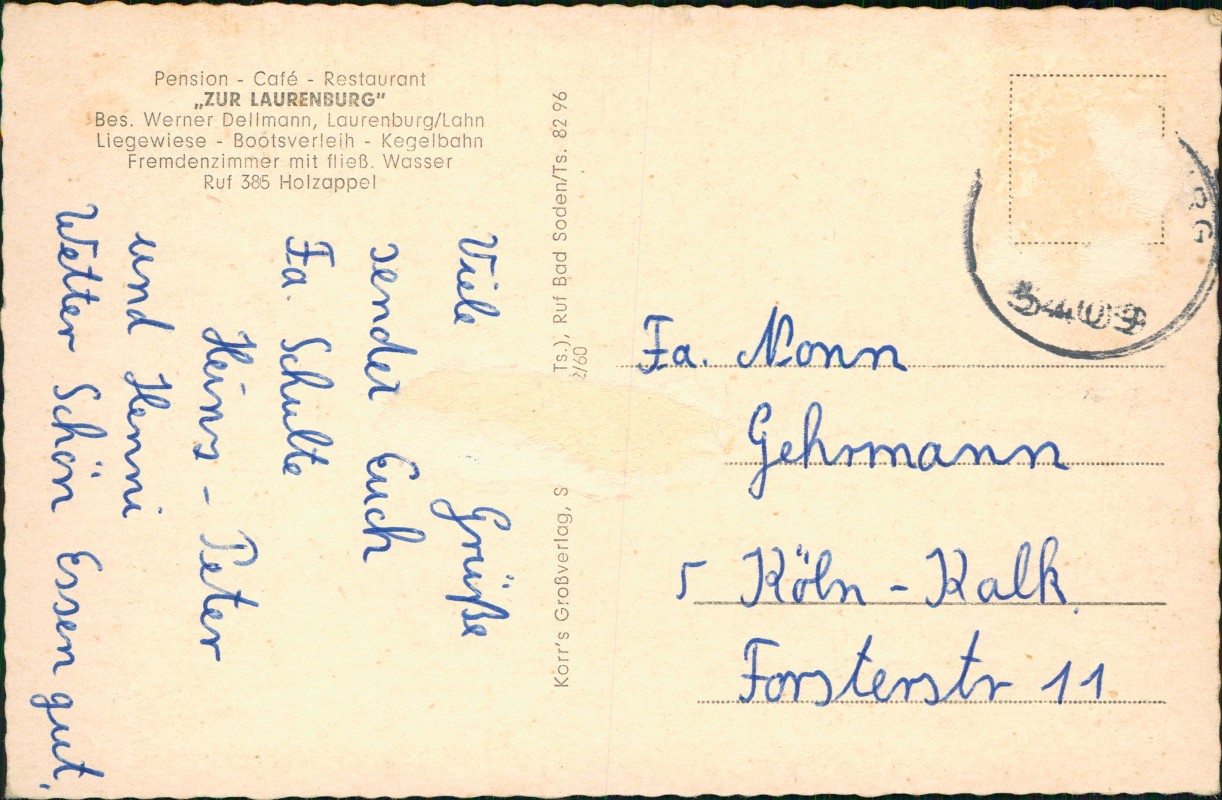 Pension - Café - Restaurant
„ZUR LAURENBURG"
Bes. Werner Dellmann, Laurenburg/Lahn
Liegewiese - Bootsverleih - Kegelbahn
Fremdenzimmer mit fließ. Wasser
Ruf 385 Holzappel
Viele Grüße
sendet Euch
Fa. Schulte
Heinz - Peter
und Henni
Wetter Schön Essen gut.
Korr's Großverlag, S
Ts.), Ruf Bad Soden/Ts. 82 96
2/60
Fa. Nonn
Gehrmann
5 Köln - Kalk
Forsterstr 11
RG
5409